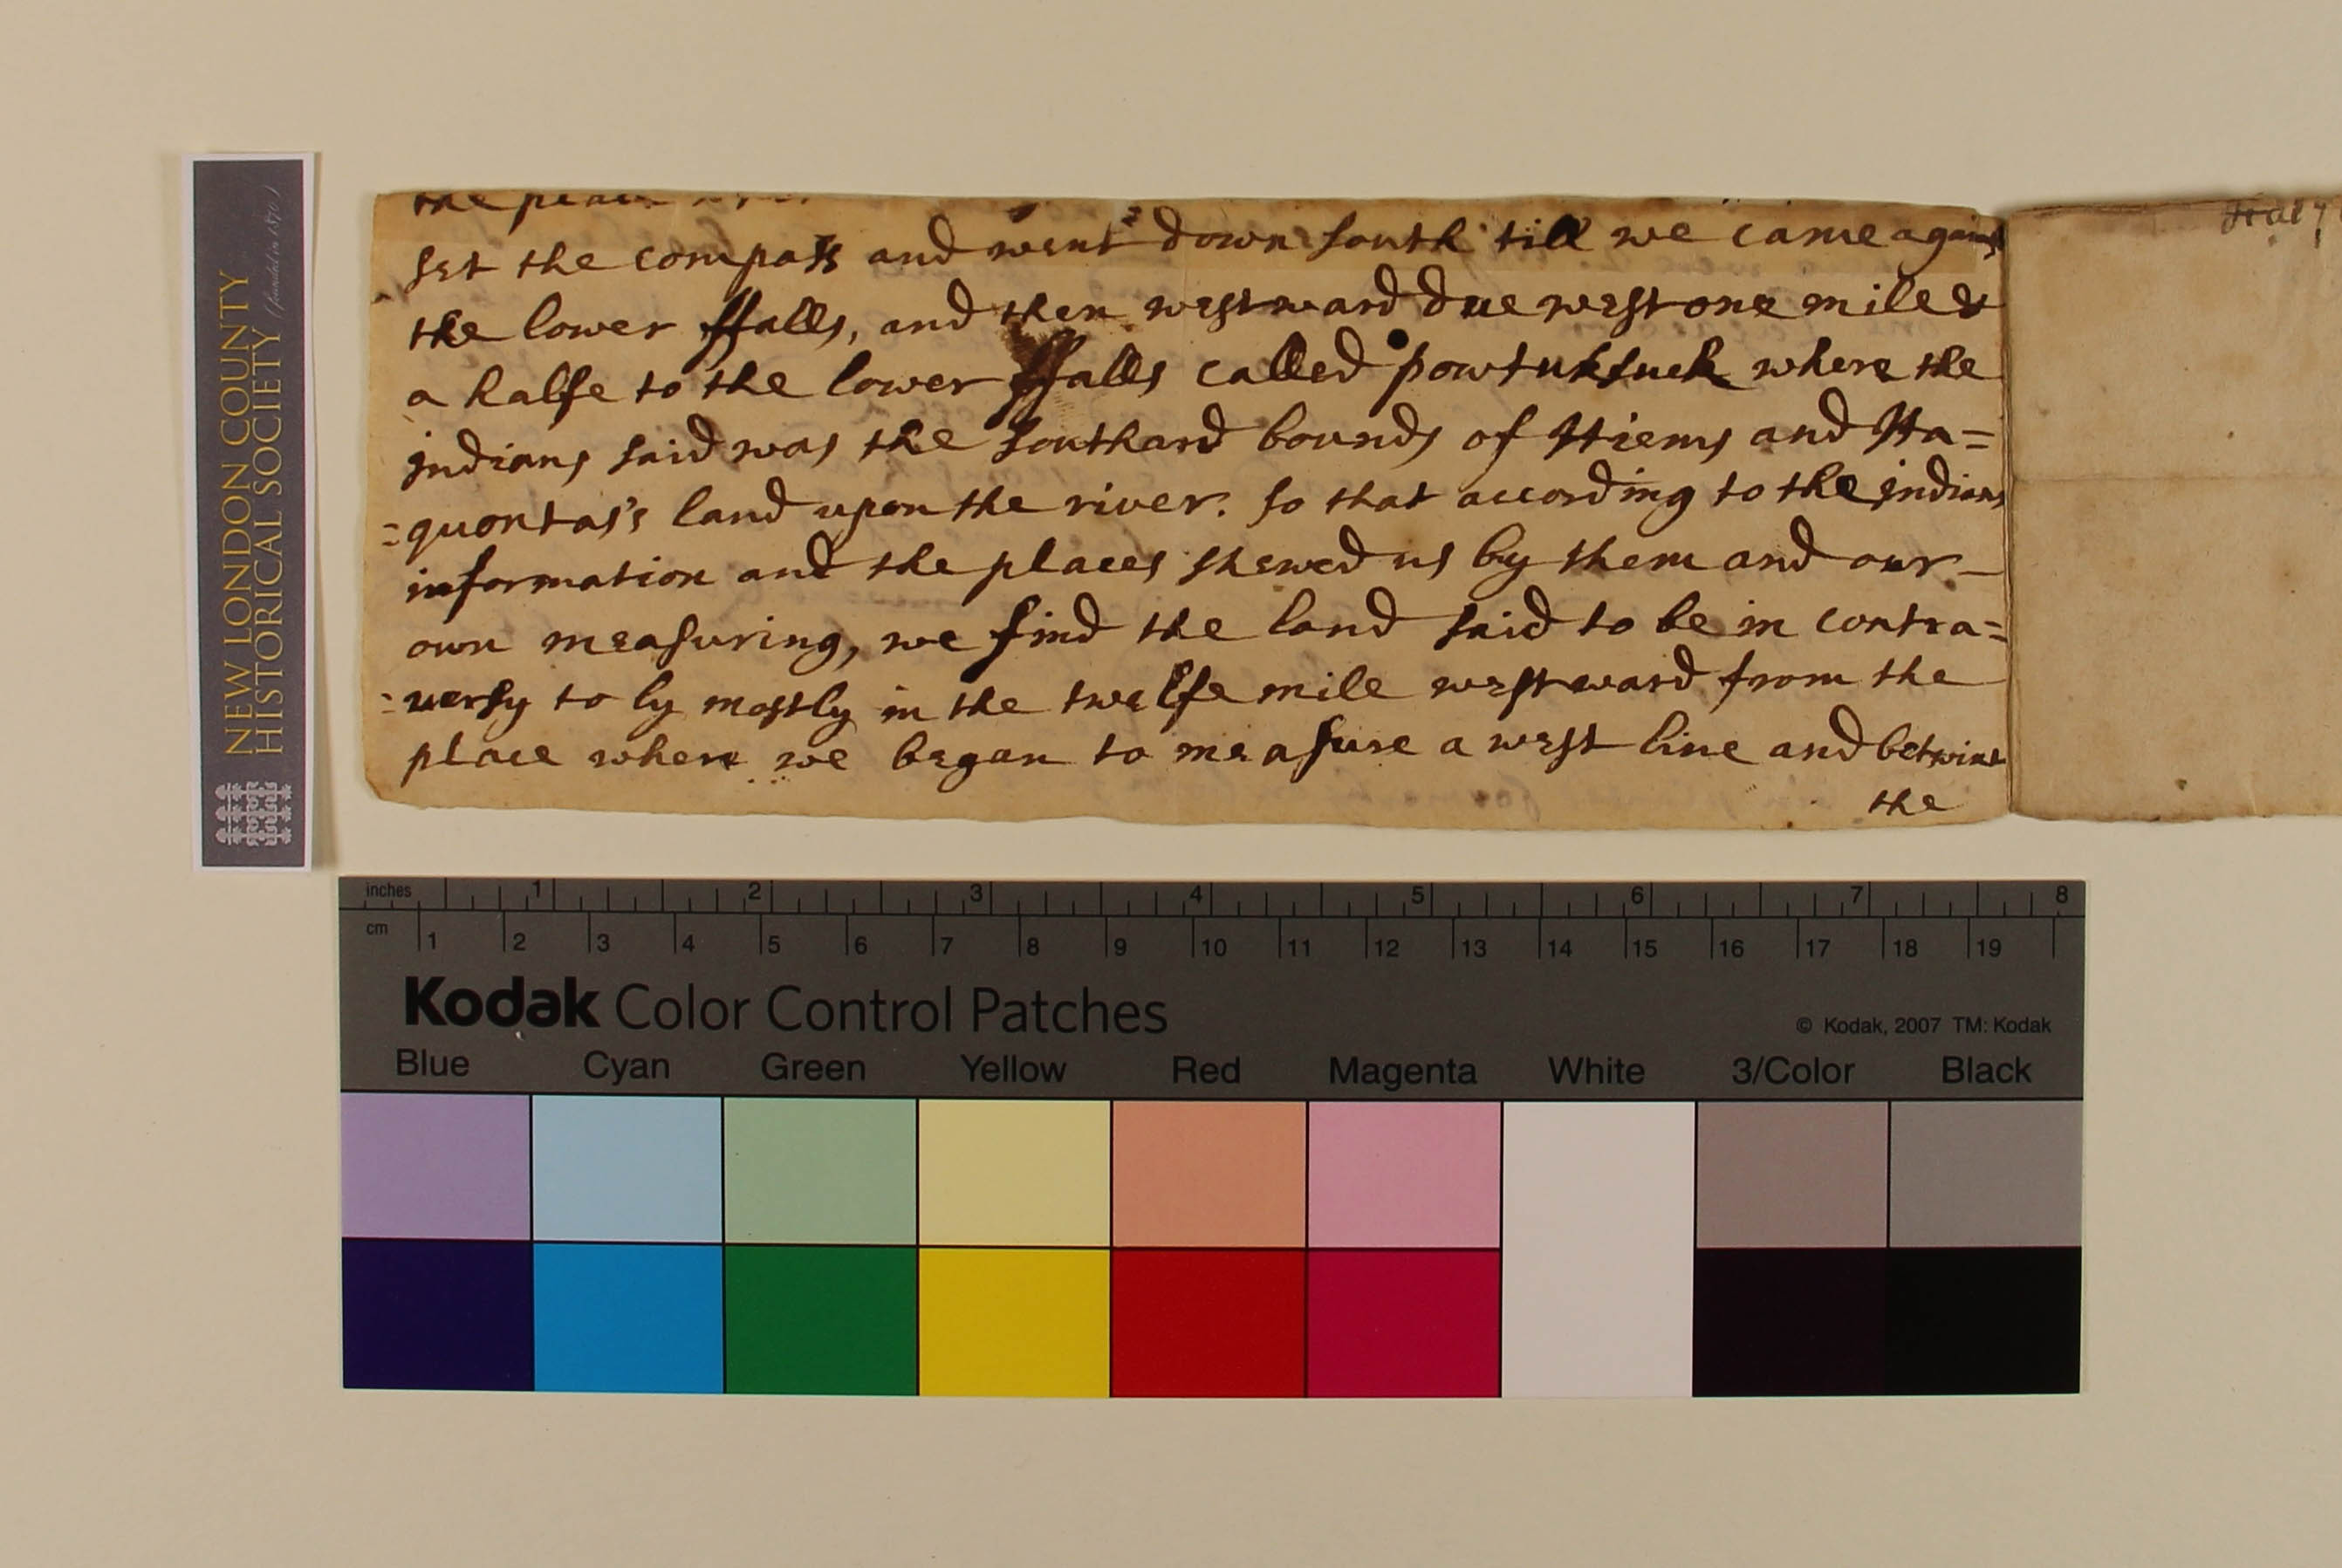 the
set the compass and went down south till we came against
the lower ffalls, and then westward due west one mile &
a halfe to the lower ffalls called powtuksuck where the
jndians said was the southard bounds of Hiems and Ha=
=quontas's land upon the river. so that according to the jndians
information and the places shewed us by them and our
own measuring, we find the land said to be in contra=
=uersy to ly mostly in the twelfe mile westward from the
place where we began to measure a west line and betwixt
the
NEW LONDON COUNTY
HISTORICAL SOCIETY (founded in 1870)
inches 1 2 3 4 5 6 7 8
cm 1 2 3 4 5 6 7 8 9 10 11 12 13 14 15 16 17 18 19
Kodak Color Control Patches
© Kodak, 2007 TM: Kodak
Blue Cyan Green Yellow Red Magenta White 3/Color Black